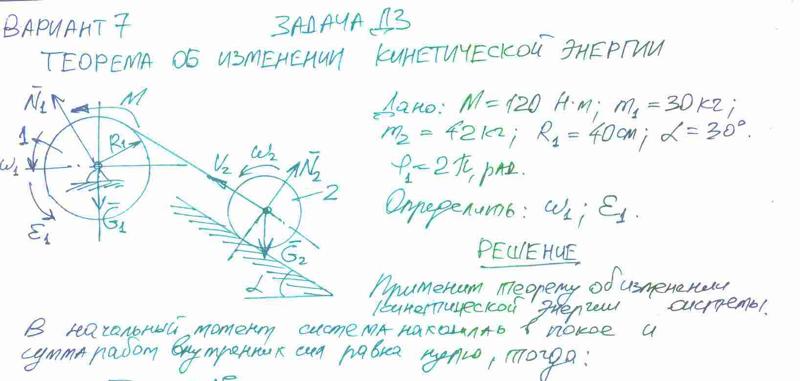 ВАРИАНТ 7 ЗАДАЧА Д3
ТЕОРЕМА ОБ ИЗМЕНЕНИИ КИНЕТИЧЕСКОЙ ЭНЕРГИИ
N̄₁ M
1 R₁
ω₁ V₂ ω₂ N̄₂
2
ε₁ Ḡ₁ Ḡ₂
α
Дано: M = 120 Н·м; m₁ = 30 кг;
m₂ = 42 кг; R₁ = 40 см; α = 30°.
φ₁ = 2π, рад.
Определить: ω₁; ε₁.
РЕШЕНИЕ
Применим теорему об изменении
кинетической энергии системы.
В начальный момент система находилась в покое и
сумма работ внутренних сил равна нулю, тогда: